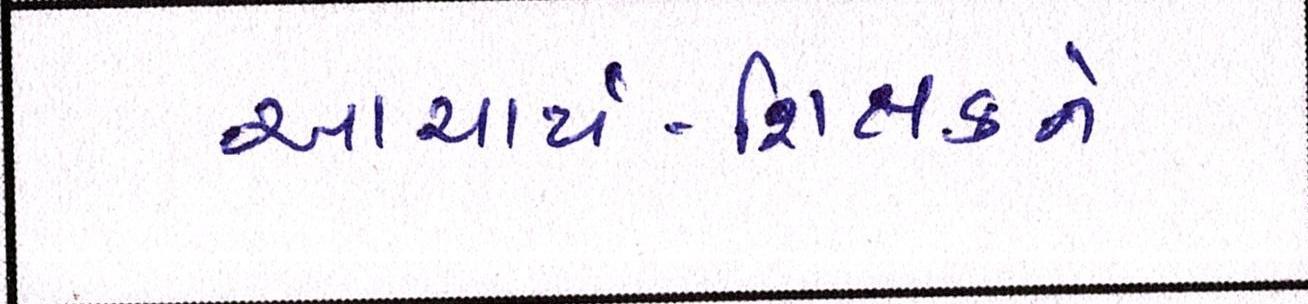 આચાર્ય-શિક્ષકને